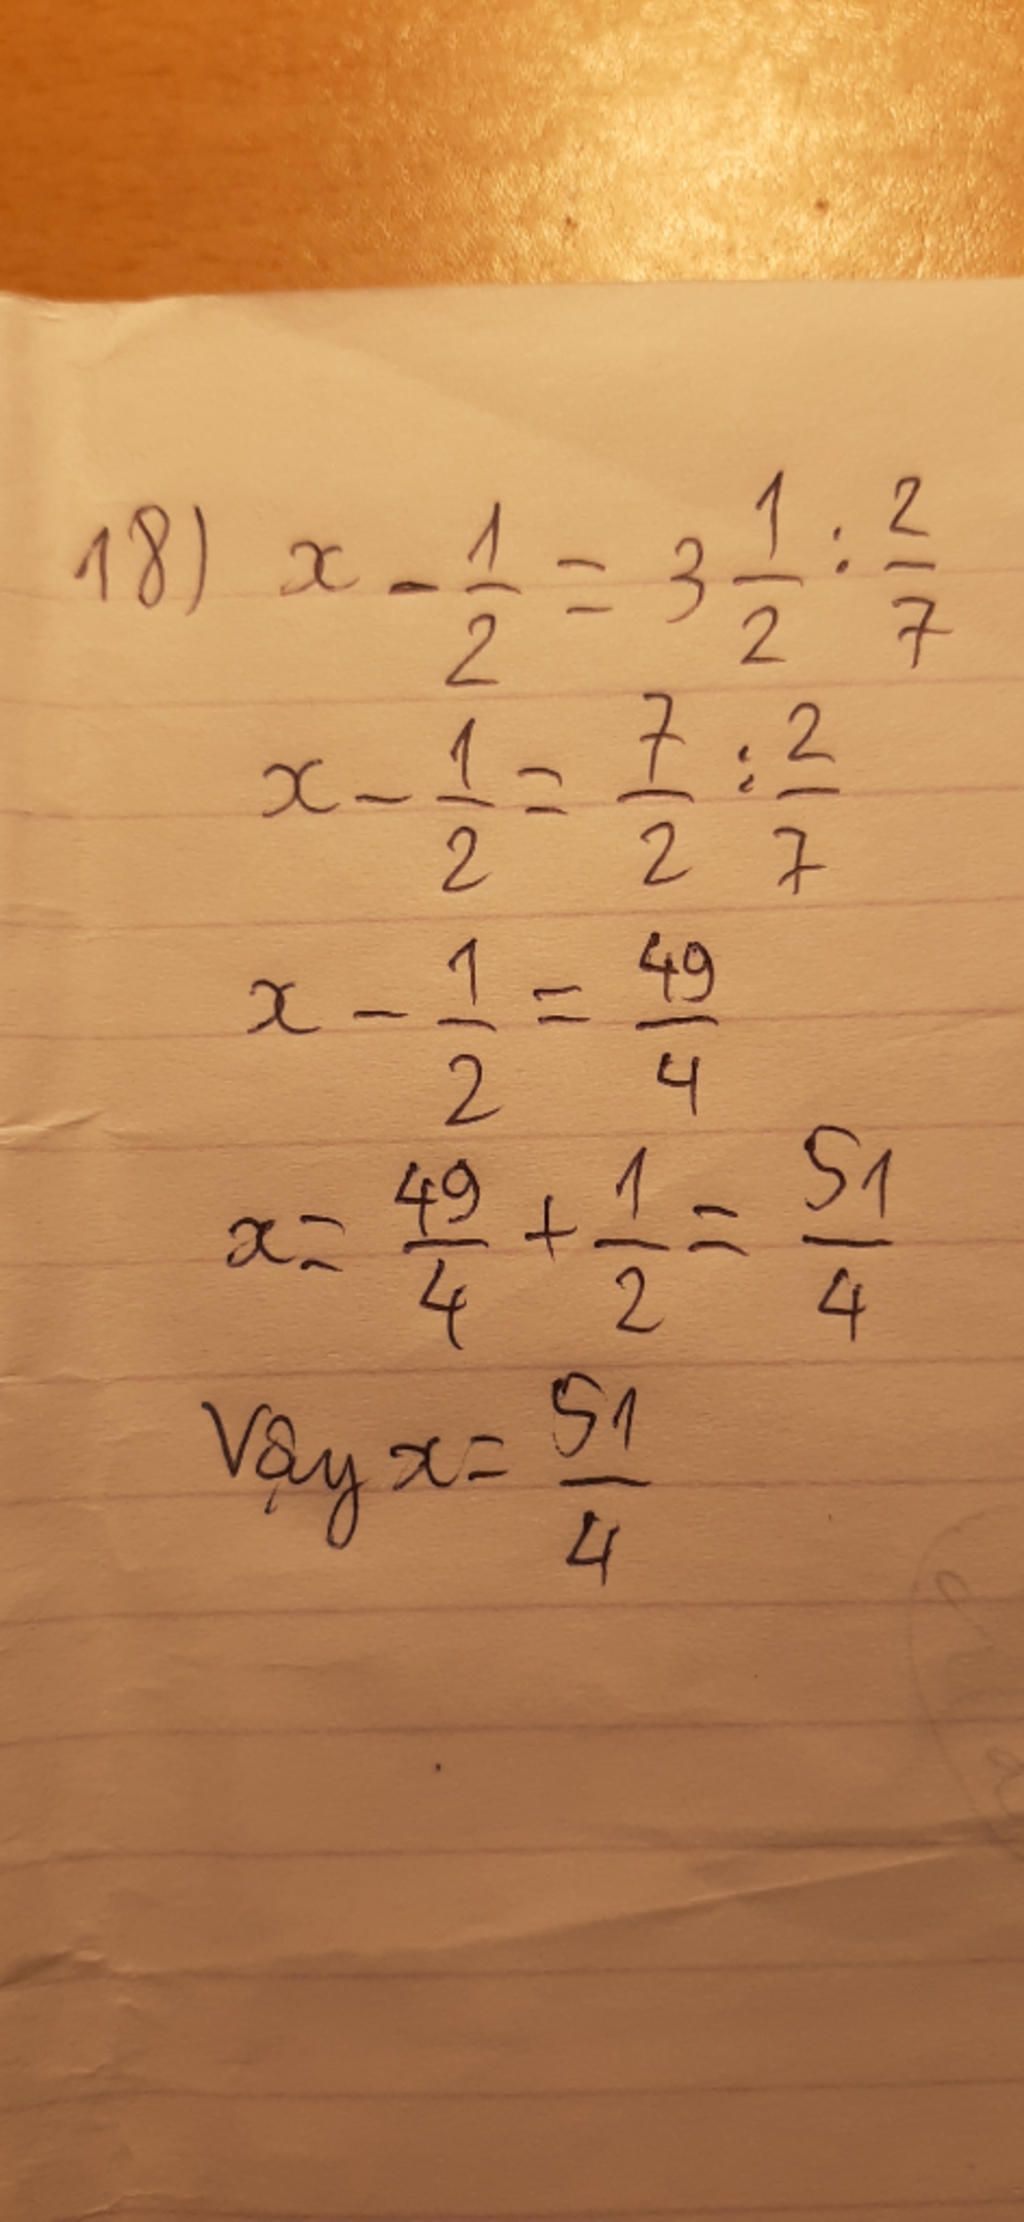 18) x - 1/2 = 3 1/2 : 2/7
x - 1/2 = 7/2 : 2/7
x - 1/2 = 49/4
x = 49/4 + 1/2 = 51/4
Vậy x = 51/4